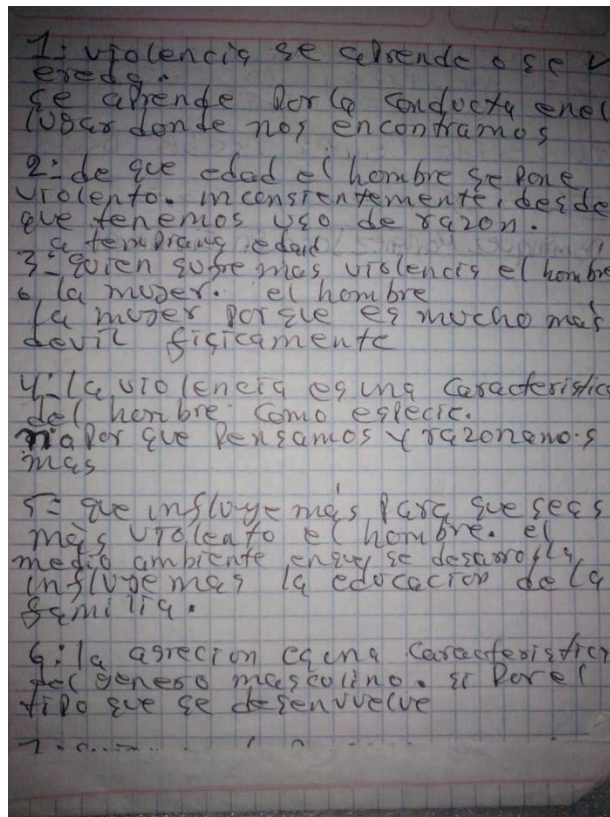 1: violencia se aprende o se
ereda.
se aprende por la conducta en el
lugar donde nos encontramos
2= de que edad el hombre se pone
violento. inconsientemente, desde
que tenemos uso de razon.
a temprana edad
3= quien sufre mas violencia el hombre
o la muger. el hombre
la muger por que es mucho más
devil fisicamente
4: la violencia es una caracteristica
del hombre como especie.
por que pensamos y razonamos
mas
5= que influye más para que seas
más violento el hombre. el
medio ambiente en que se desarrolla
influye mas la educacion de la
familia.
6: la agrecion es una caracteristica
del genero masculino. si por el
tipo que se desenvuelve